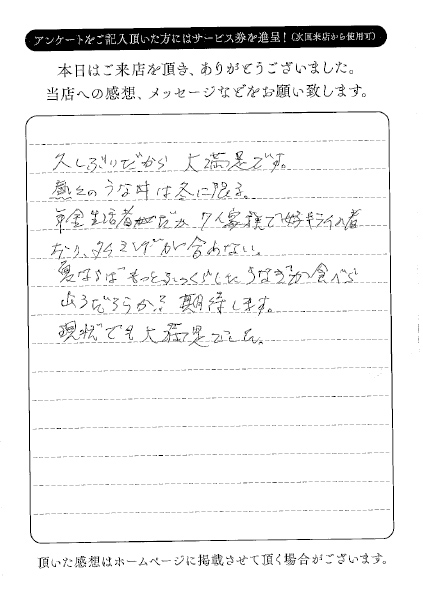 アンケートをご記入頂いた方にはサービス券を進呈！(次回来店から使用可)
本日はご来店を頂き、ありがとうございました。
当店への感想、メッセージなどをお願い致します。
久しぶりだから 大満足です。
熱々のうな丼は冬に限る。
年金生活者だが 7人家族で好キライの者
おり、タイミングが合めない。
夏ならばもっとふっくらしたうなぎが食べら
れるだろうか？ 期待します。
現状でも大満足でした。
頂いた感想はホームページに掲載させて頂く場合がございます。